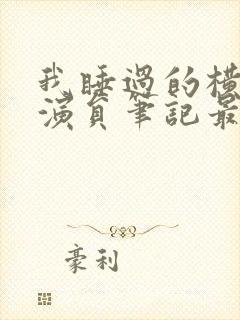 我睡過的橫
演員筆記最
豪利